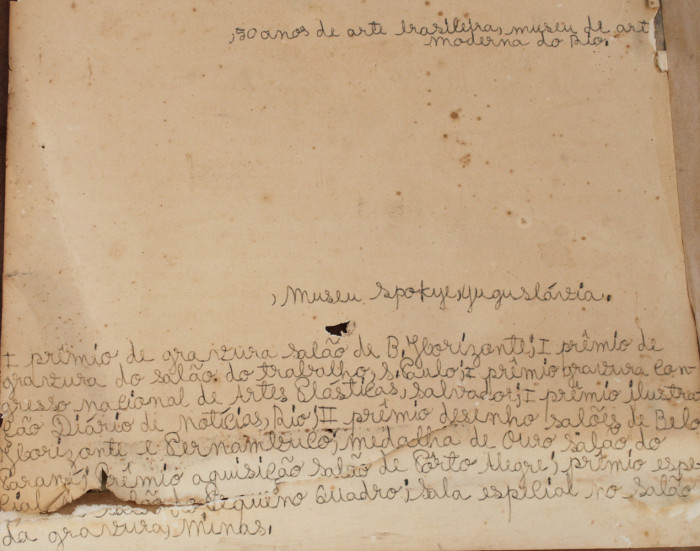 , 50 anos de arte brasileira, museu de art
moderna do Rio.
, Museu Spokye, yuguslávia.
I prêmio de gravura salão de B. Horizonte; I prêmio de
gravura do salão do trabalho, S. Paulo; I prêmio gravura con
gresso nacional de Artes Plásticas, Salvador; I prêmio ilustra
ção Diário de notícias, Rio; II prêmio desenho salões de Belo
Horizonte e Pernambuco; medalha de Ouro salão do
Paraná; Prêmio aquisição salão de Pôrto Alegre; prêmio espe
cial salão do Pequeno Quadro; sala espicial no salão
da gravura, Minas.